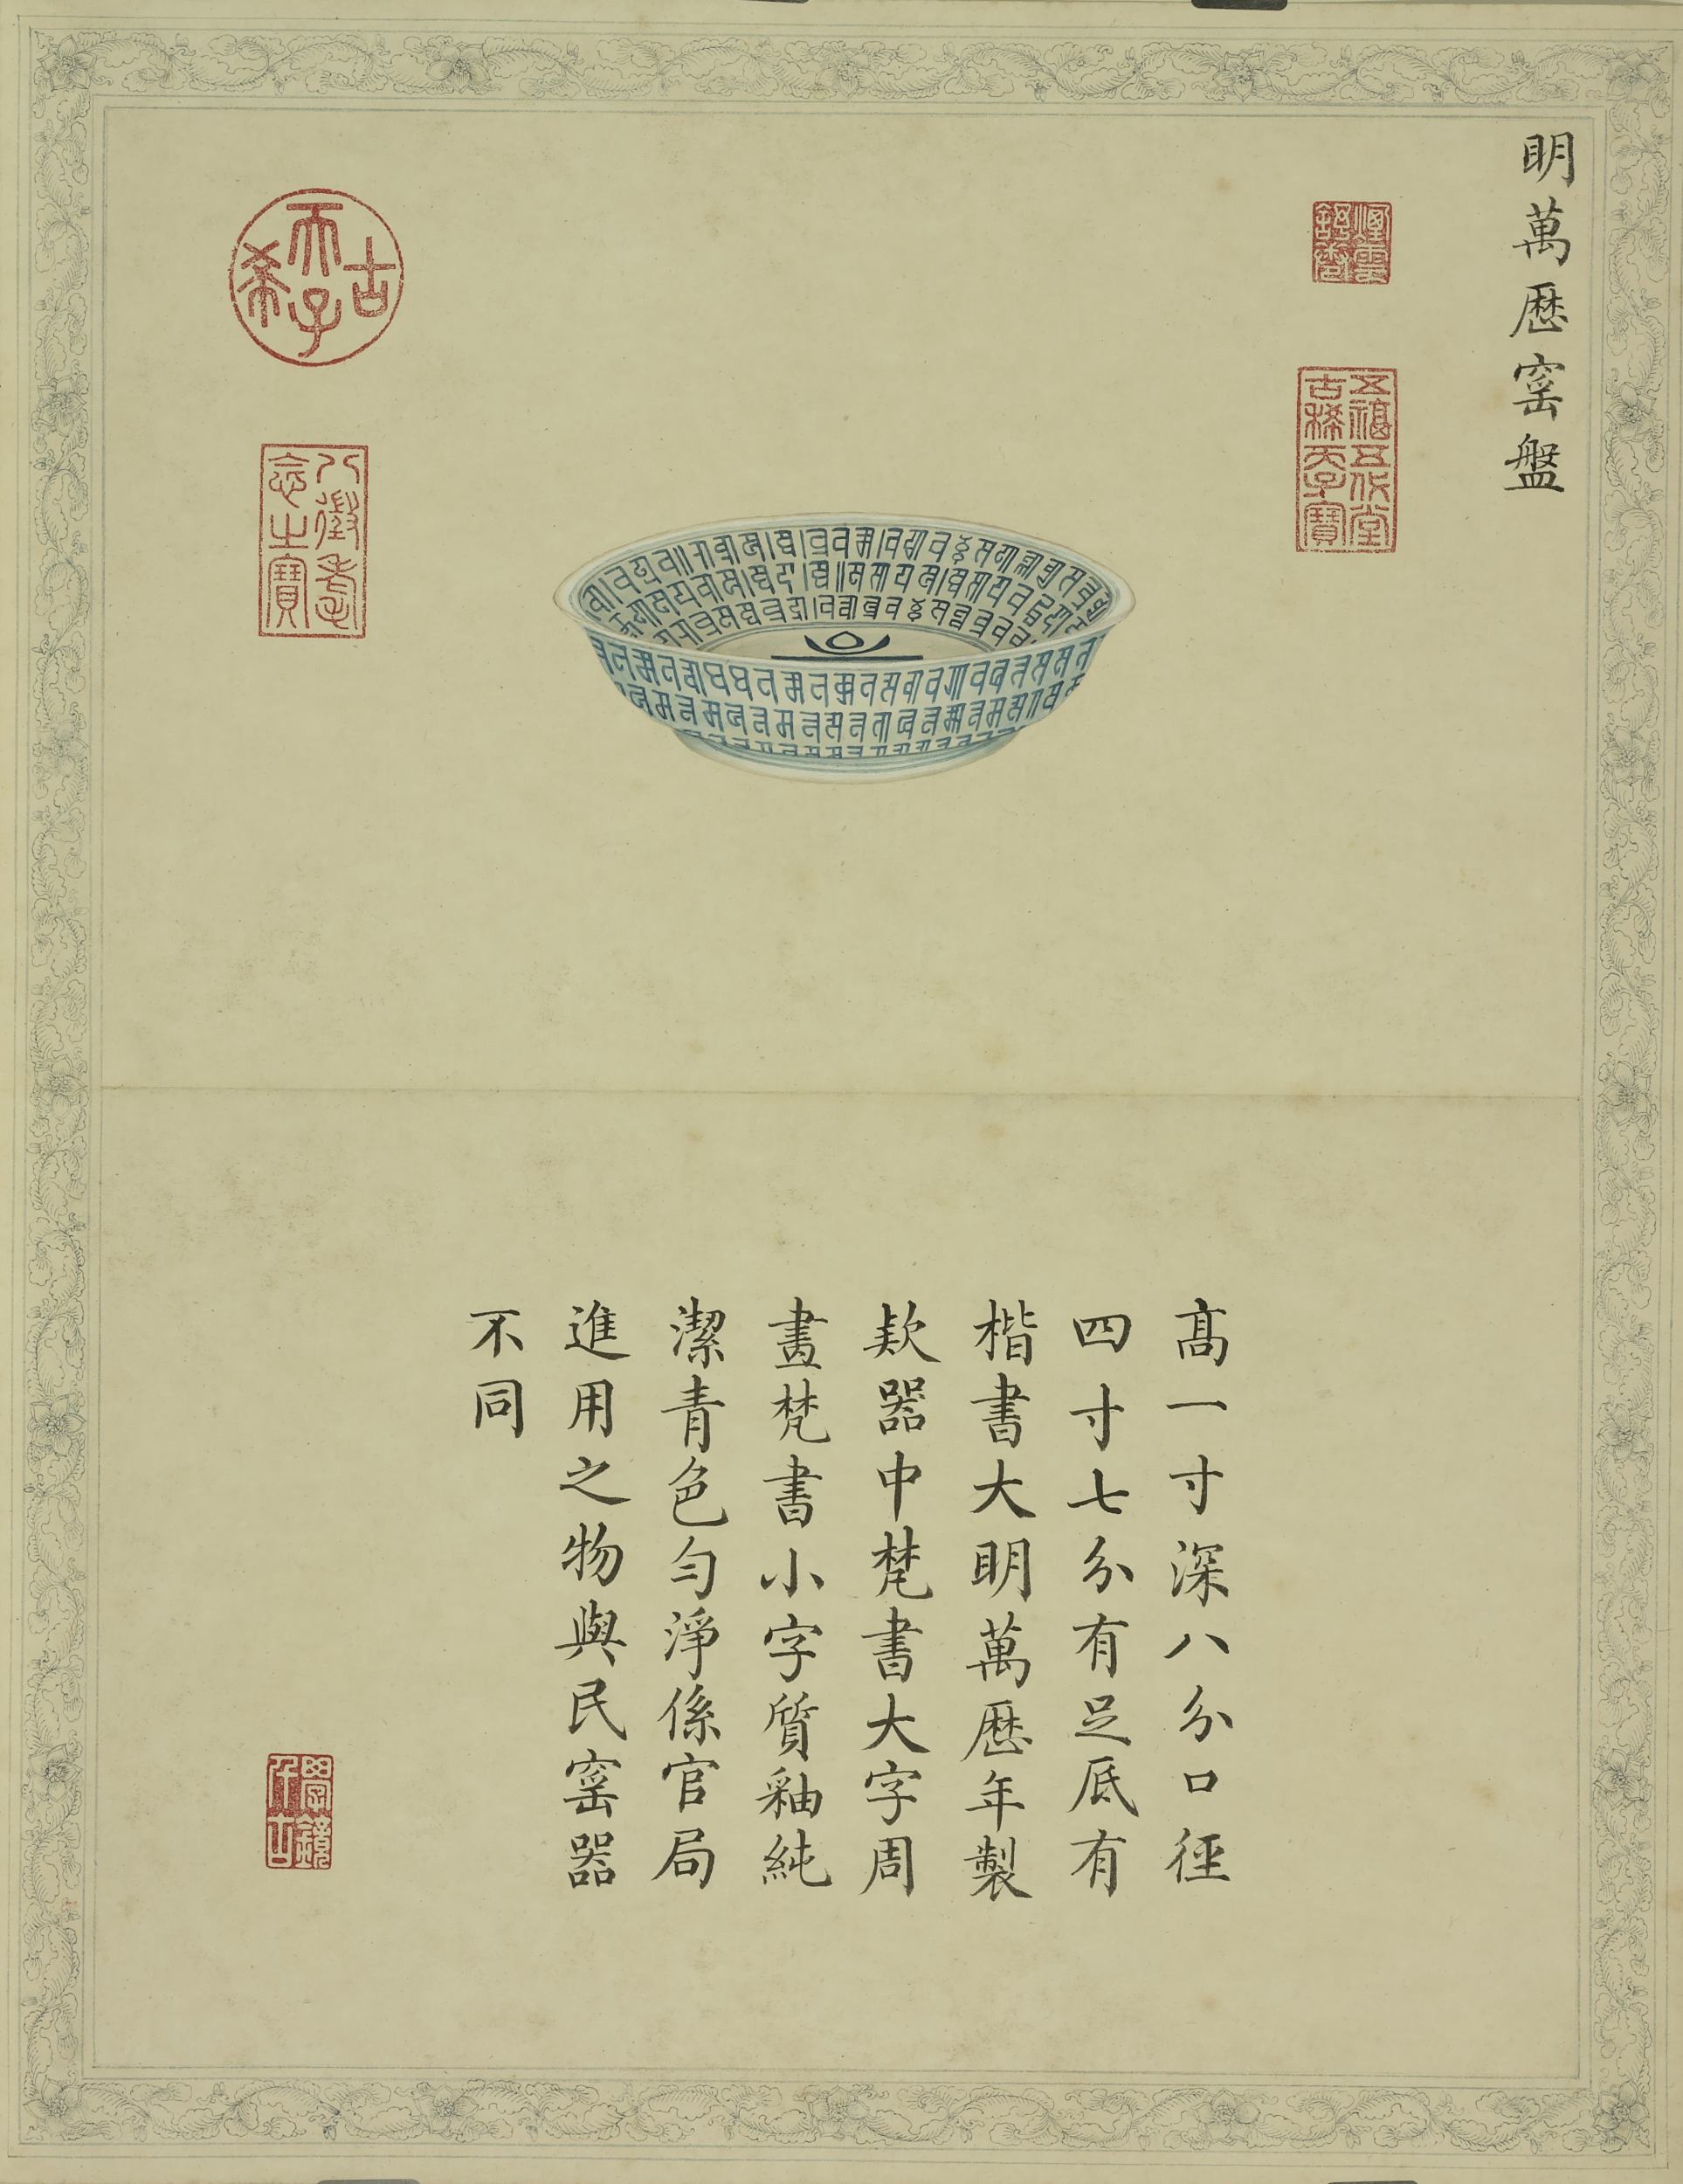 明萬歷窯盤
五福五代堂
古稀天子寶
古希天子
八徵耄
念之寶
高一寸深八分口徑
四寸七分有足底有
楷書大明萬歷年製
款器中梵書大字周
畫梵書小字質釉純
潔青色勻淨係官局
進用之物與民窯器
不同